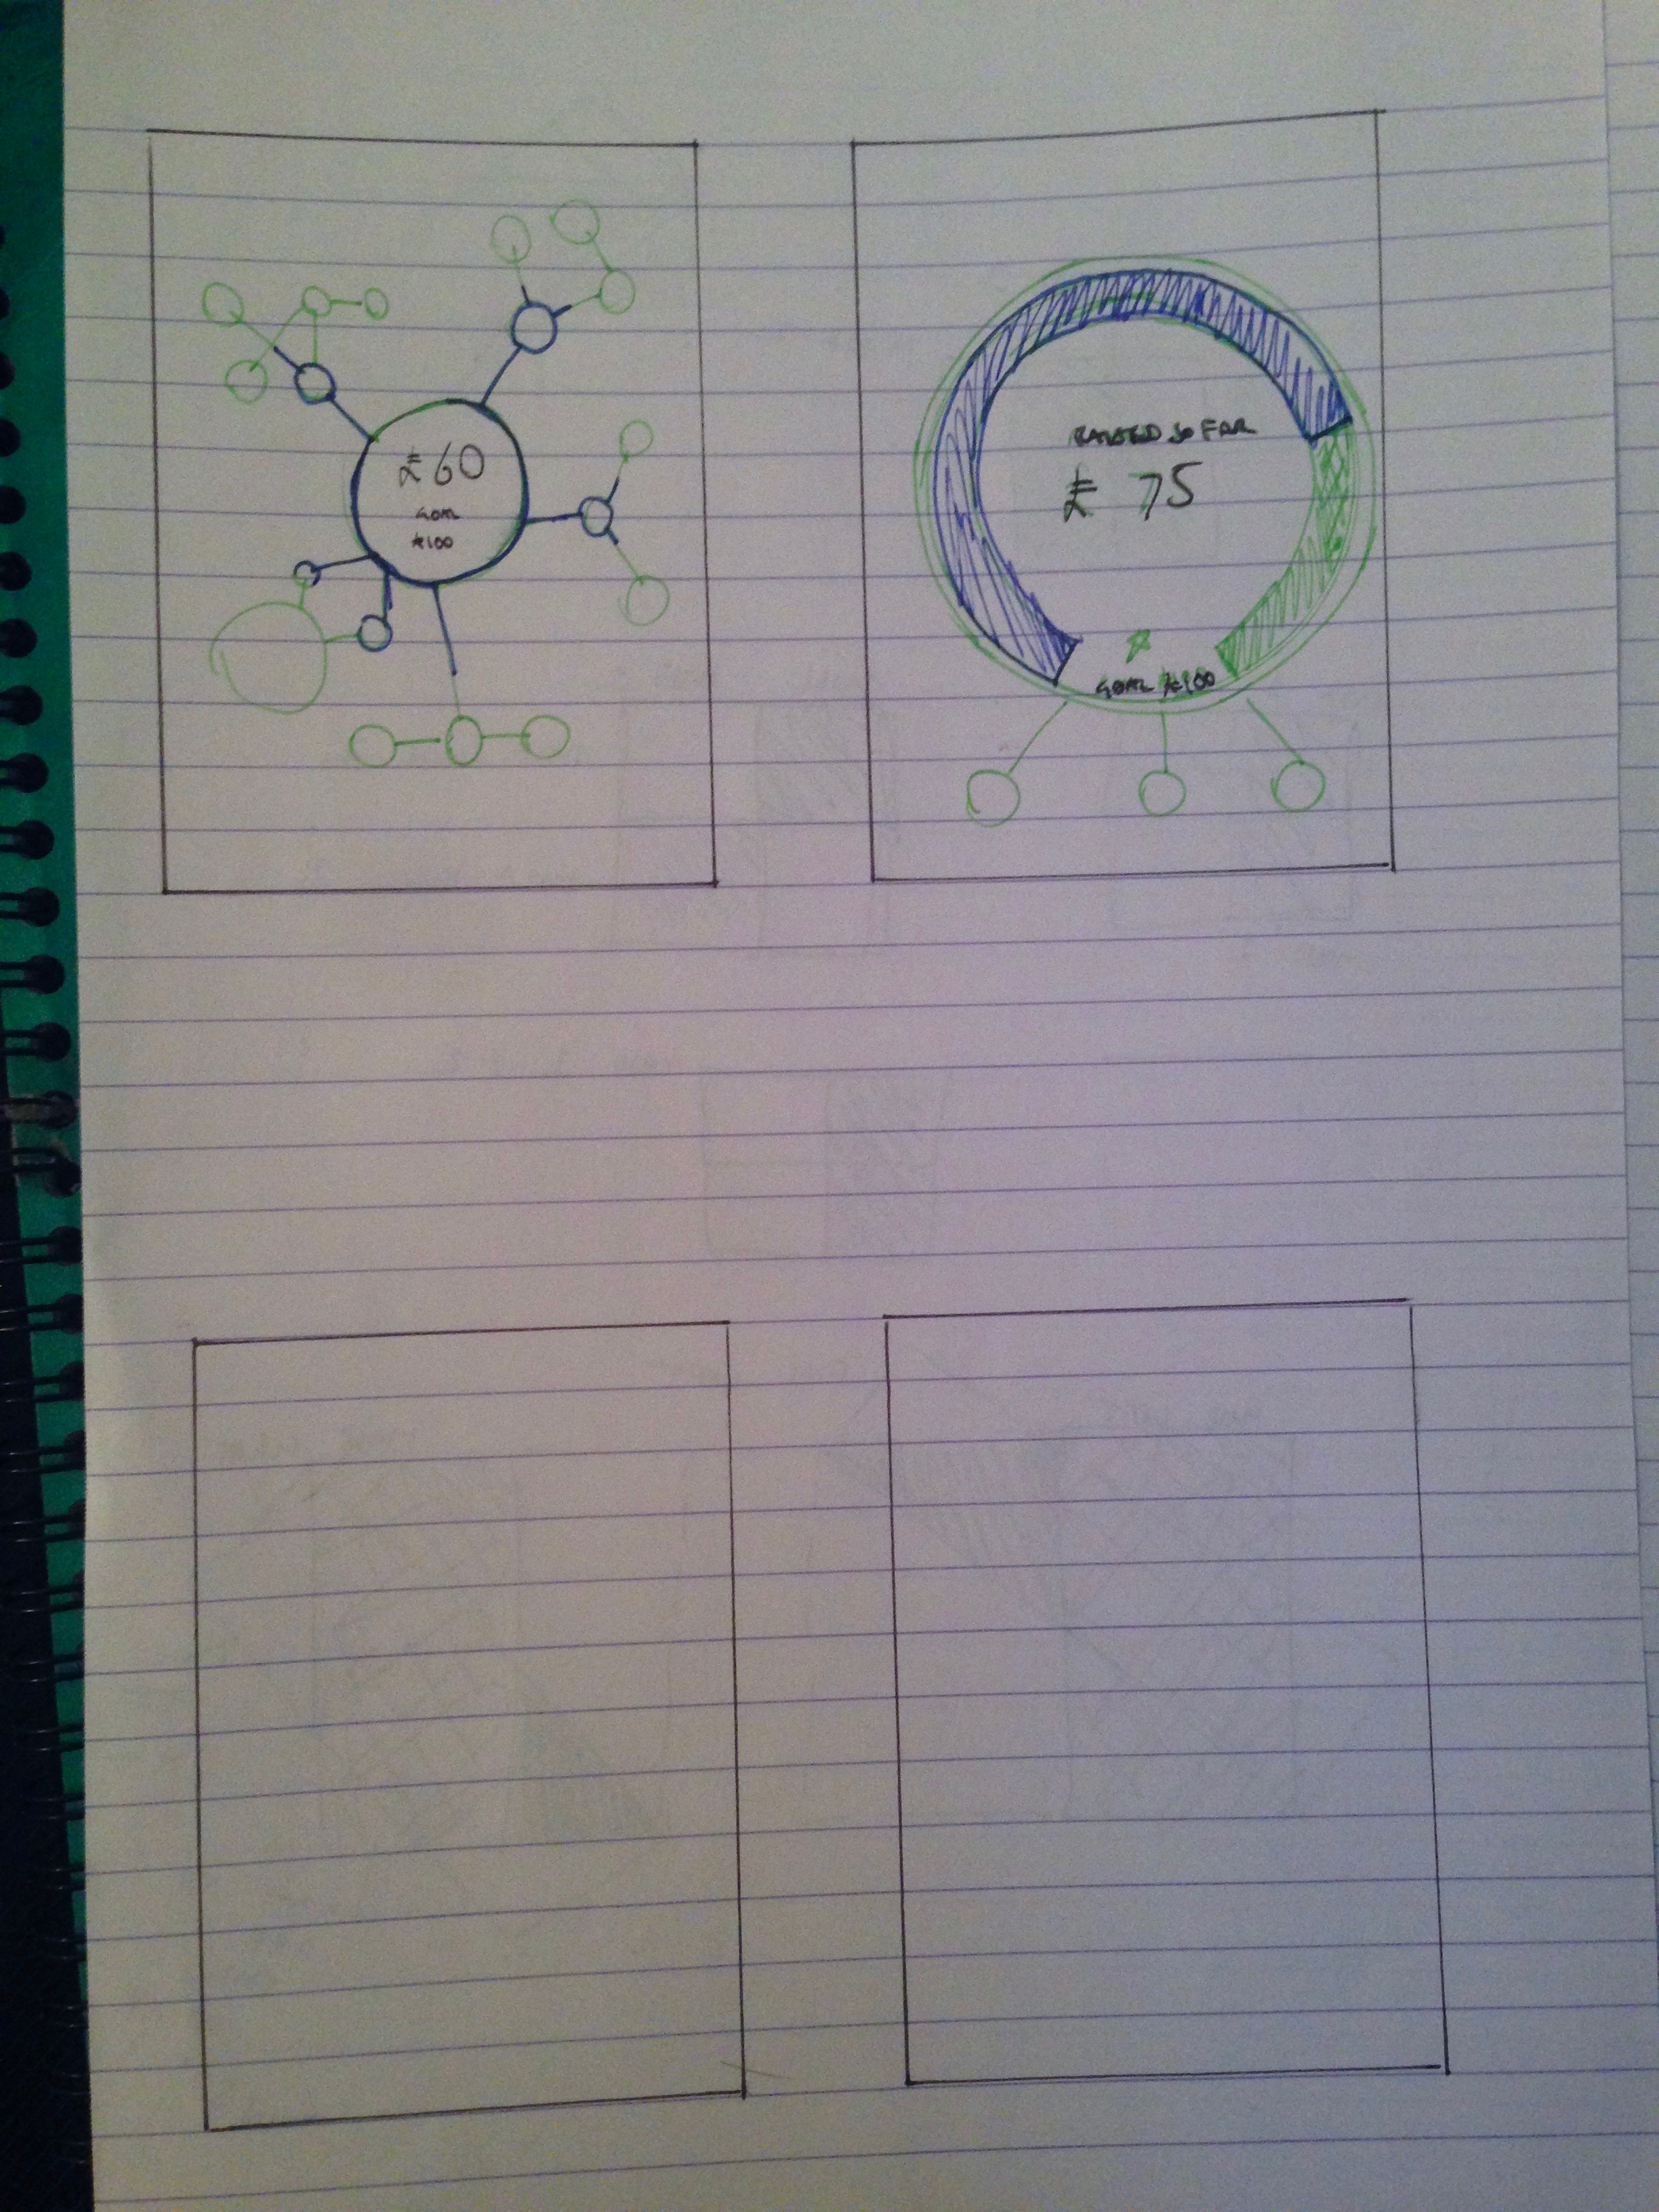 £60
GOAL
£100
RAISED SO FAR
£ 75
GOAL £100